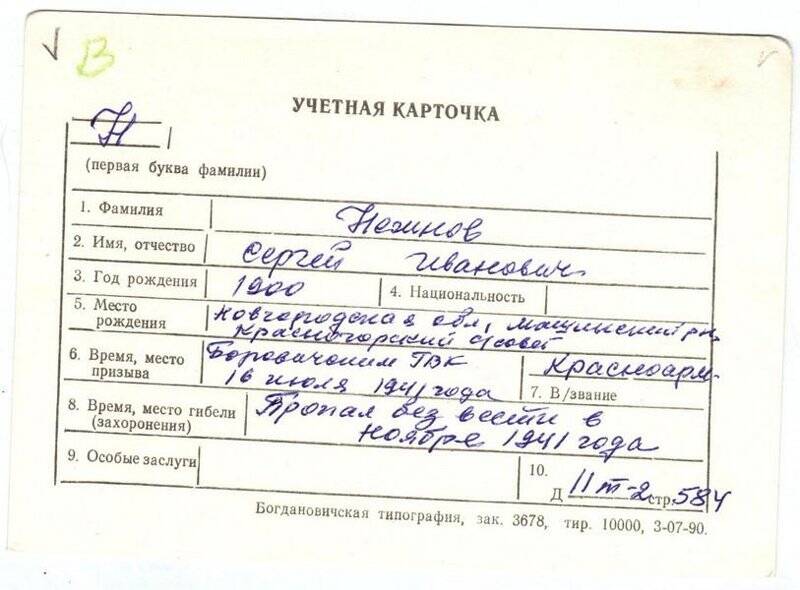 В
УЧЕТНАЯ КАРТОЧКА
Н
(первая буква фамилии)
1. Фамилия
2. Имя, отчество Сергей Иванович
3. Год рождения 1900 4. Национальность
5. Место рождения Новгородская обл, Мошинский р-н
Красногорский с/совет
6. Время, место призыва Боровичским ГВК
16 июля 1941 года
Красноарм.
7. В/звание
8. Время, место гибели (захоронения) Пропал без вести в
ноябре 1941 года
9. Особые заслуги
10.
Д 11т-2 стр. 584
Богдановичская типография, зак. 3678, тир. 10000, 3-07-90.